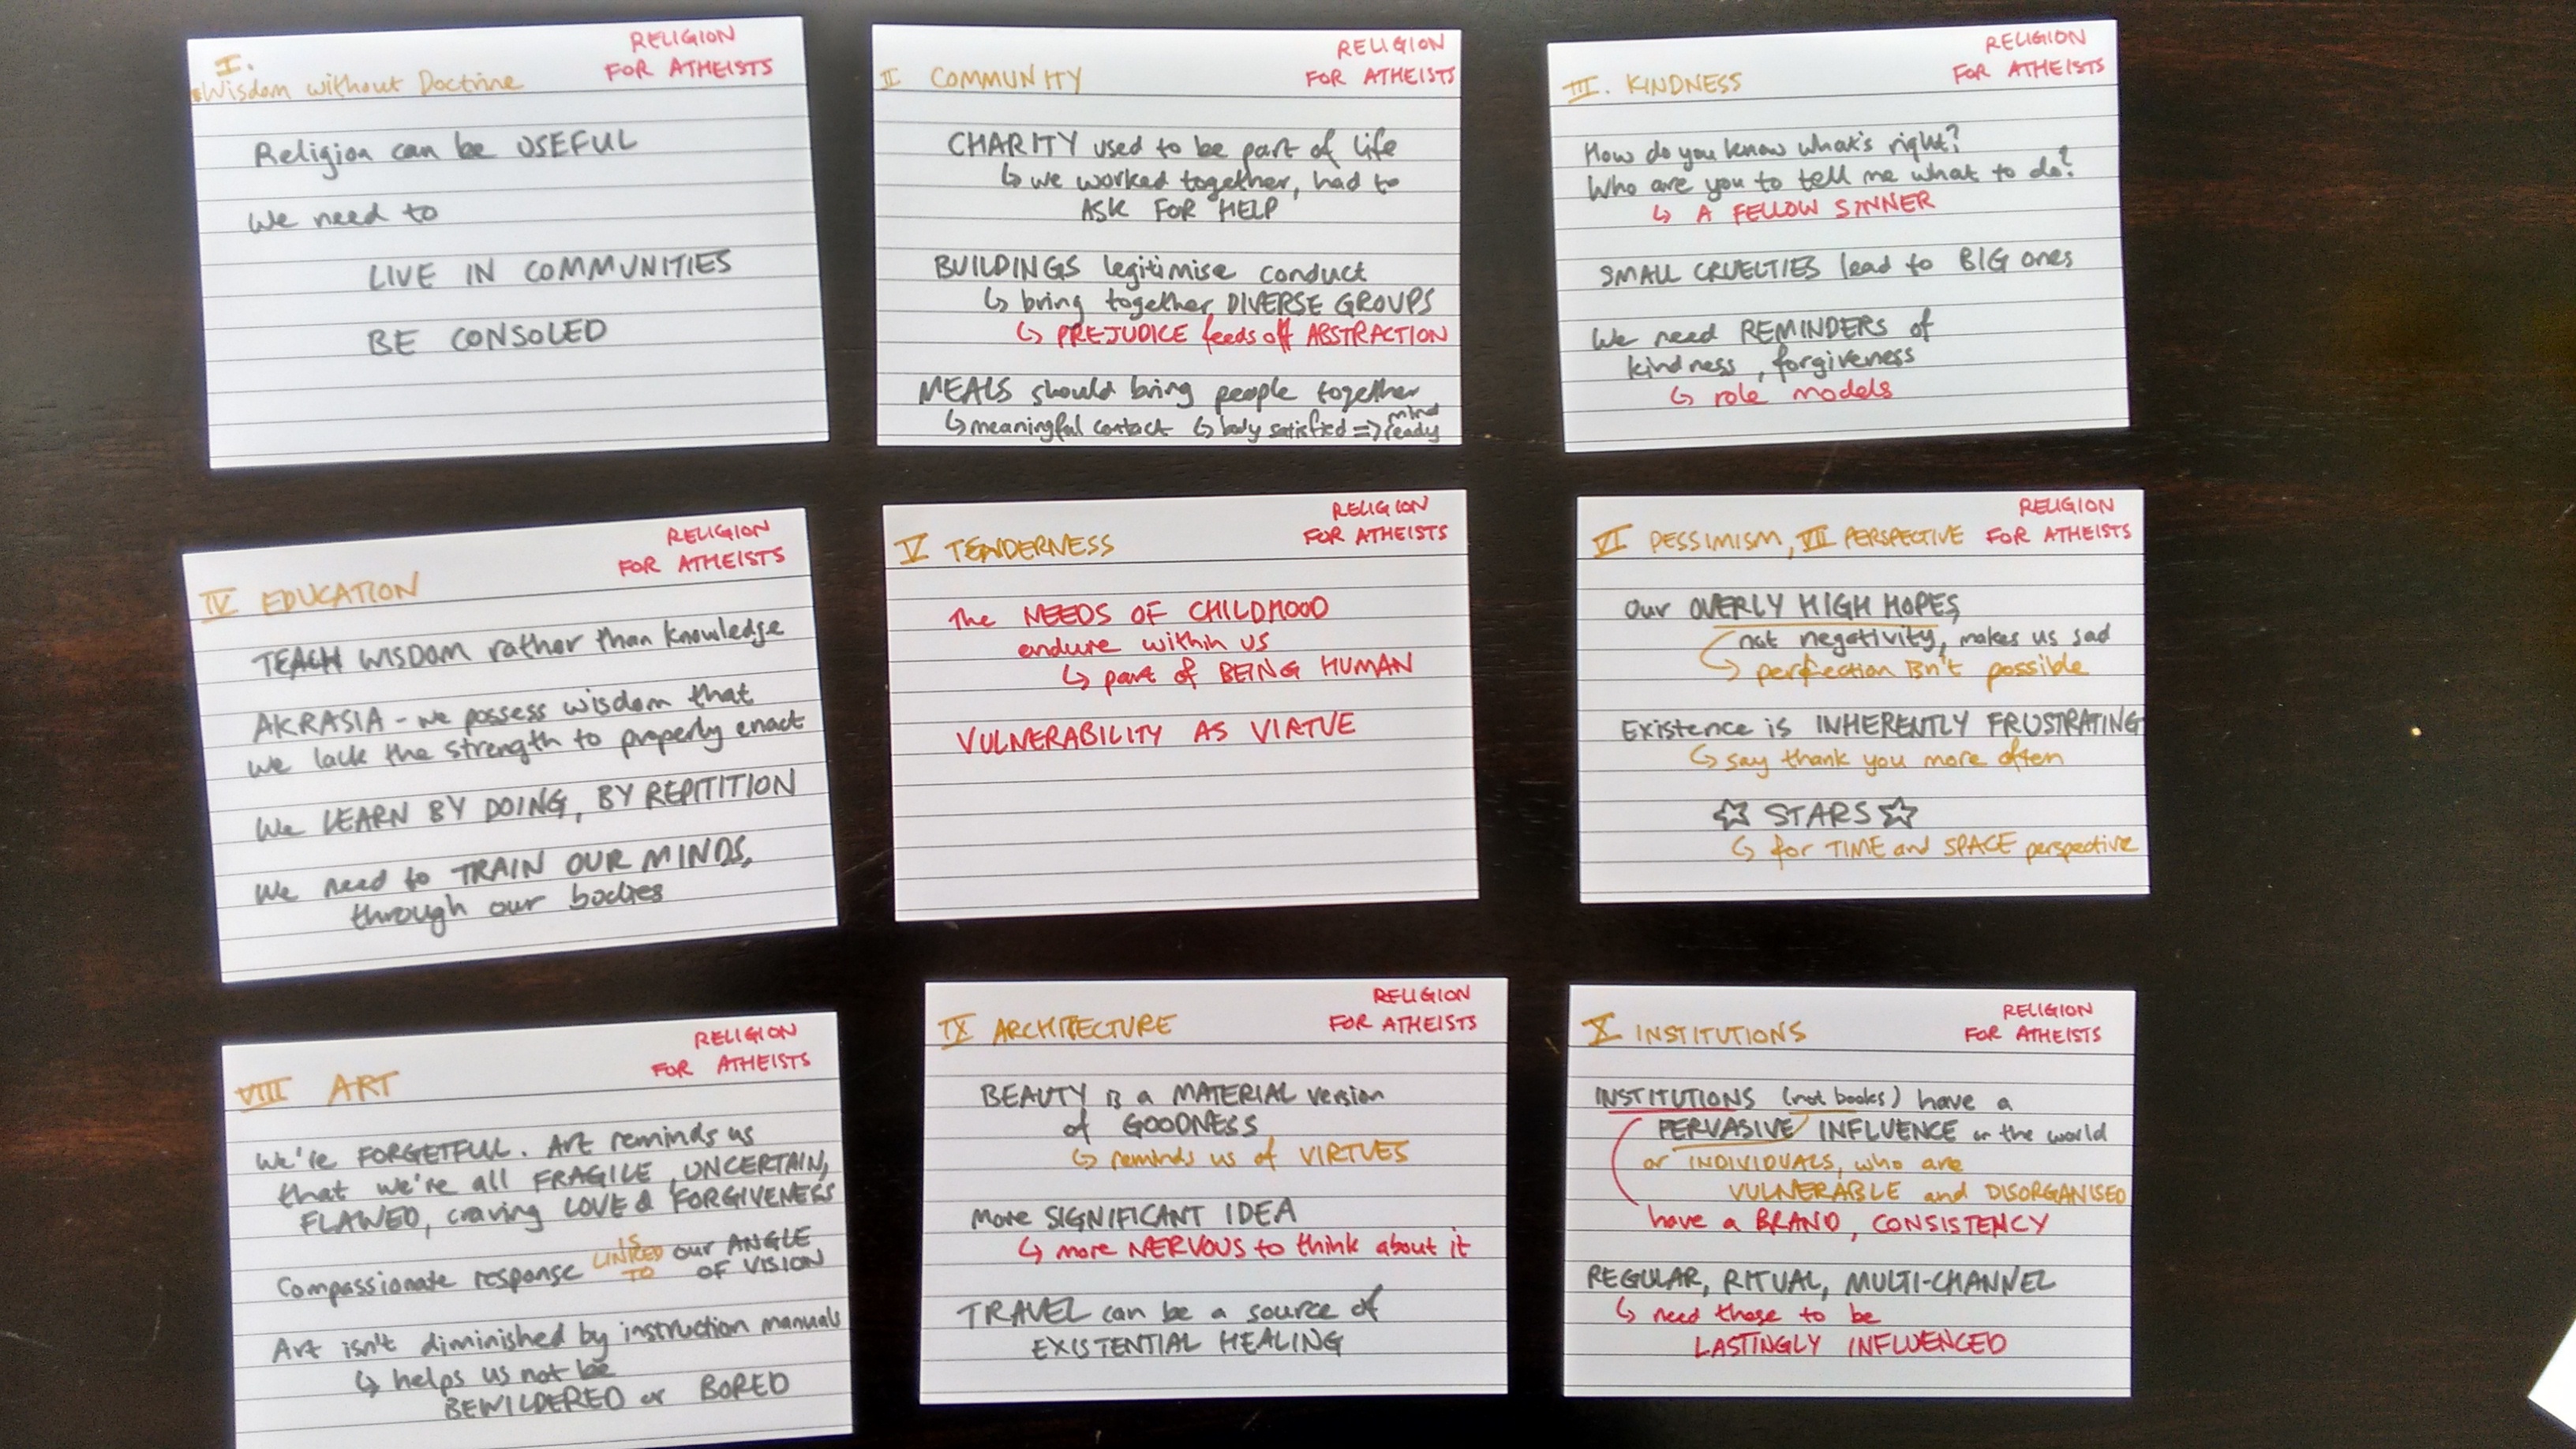 I.
Wisdom without Doctrine
RELIGION
FOR ATHEISTS
Religion can be USEFUL
We need to
LIVE IN COMMUNITIES
BE CONSOLED
II COMMUNITY
RELIGION
FOR ATHEISTS
CHARITY used to be part of life
↳ we worked together, had to
ASK FOR HELP
BUILDINGS legitimise conduct
↳ bring together DIVERSE GROUPS
↳ PREJUDICE feeds off ABSTRACTION
MEALS should bring people together
↳ meaningful contact ↳ body satisfied => mind ready
III. KINDNESS
RELIGION
FOR ATHEISTS
How do you know what's right?
Who are you to tell me what to do?
↳ A FELLOW SINNER
SMALL CRUELTIES lead to BIG ones
We need REMINDERS of
kindness, forgiveness
↳ role models
IV EDUCATION
RELIGION
FOR ATHEISTS
TEACH WISDOM rather than knowledge
AKRASIA - we possess wisdom that
we lack the strength to properly enact
We LEARN BY DOING, BY REPITITION
We need to TRAIN OUR MINDS,
through our bodies
V TENDERNESS
RELIGION
FOR ATHEISTS
The NEEDS OF CHILDHOOD
endure within us
↳ part of BEING HUMAN
VULNERABILITY AS VIRTUE
VI PESSIMISM, VII PERSPECTIVE
RELIGION
FOR ATHEISTS
Our OVERLY HIGH HOPES,
not negativity, makes us sad
↳ perfection isn't possible
Existence is INHERENTLY FRUSTRATING
↳ say thank you more often
☆ STARS ☆
↳ for TIME and SPACE perspective
VIII ART
RELIGION
FOR ATHEISTS
We're FORGETFUL. Art reminds us
that we're all FRAGILE, UNCERTAIN,
FLAWED, craving LOVE & FORGIVENESS
Compassionate response IS LINKED TO our ANGLE
OF VISION
Art isn't diminished by instruction manuals
↳ helps us not be
BEWILDERED or BORED
IX ARCHITECTURE
RELIGION
FOR ATHEISTS
BEAUTY is a MATERIAL version
of GOODNESS
↳ reminds us of VIRTUES
More SIGNIFICANT IDEA
↳ more NERVOUS to think about it
TRAVEL can be a source of
EXISTENTIAL HEALING
X INSTITUTIONS
RELIGION
FOR ATHEISTS
INSTITUTIONS (not books) have a
PERVASIVE INFLUENCE on the world
or INDIVIDUALS, who are
VULNERABLE and DISORGANISED
have a BRAND, CONSISTENCY
REGULAR, RITUAL, MULTI-CHANNEL
↳ need these to be
LASTINGLY INFLUENCED